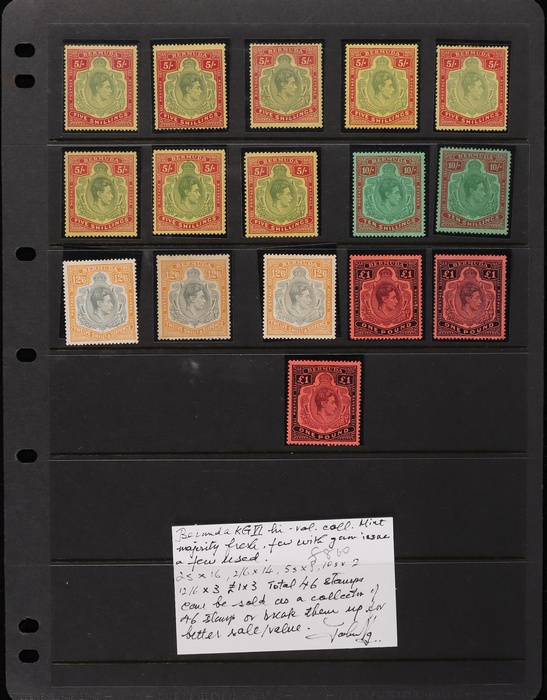 5/- BERMUDA 5/- 5/- BERMUDA 5/- 5/- BERMUDA 5/- 5/- BERMUDA 5/- 5/- BERMUDA 5/-
FIVE SHILLINGS FIVE SHILLINGS FIVE SHILLINGS FIVE SHILLINGS FIVE SHILLINGS
5/- BERMUDA 5/- 5/- BERMUDA 5/- 5/- BERMUDA 5/- 10/- BERMUDA 10/- 10/- BERMUDA 10/-
FIVE SHILLINGS FIVE SHILLINGS FIVE SHILLINGS TEN SHILLINGS TEN SHILLINGS
12/6 BERMUDA 12/6 12/6 BERMUDA 12/6 12/6 BERMUDA 12/6 £1 BERMUDA £1 £1 BERMUDA £1
ONE POUND ONE POUND
£1 BERMUDA £1
ONE POUND
Bermuda KG VI hi-val. coll. Mint
majority fresh, few with gum issue
a few used.
2s x 16, 2/6 x 14, 5s x 8, 10s x 2
12/6 x 3 £1 x 3 Total 46 stamps
can be sold as a collection of
46 stamps or break them up for
better sale/value.